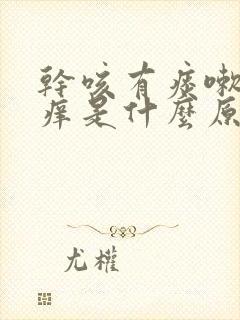 幹咳有痰嗽
痒是什麼原
尤權